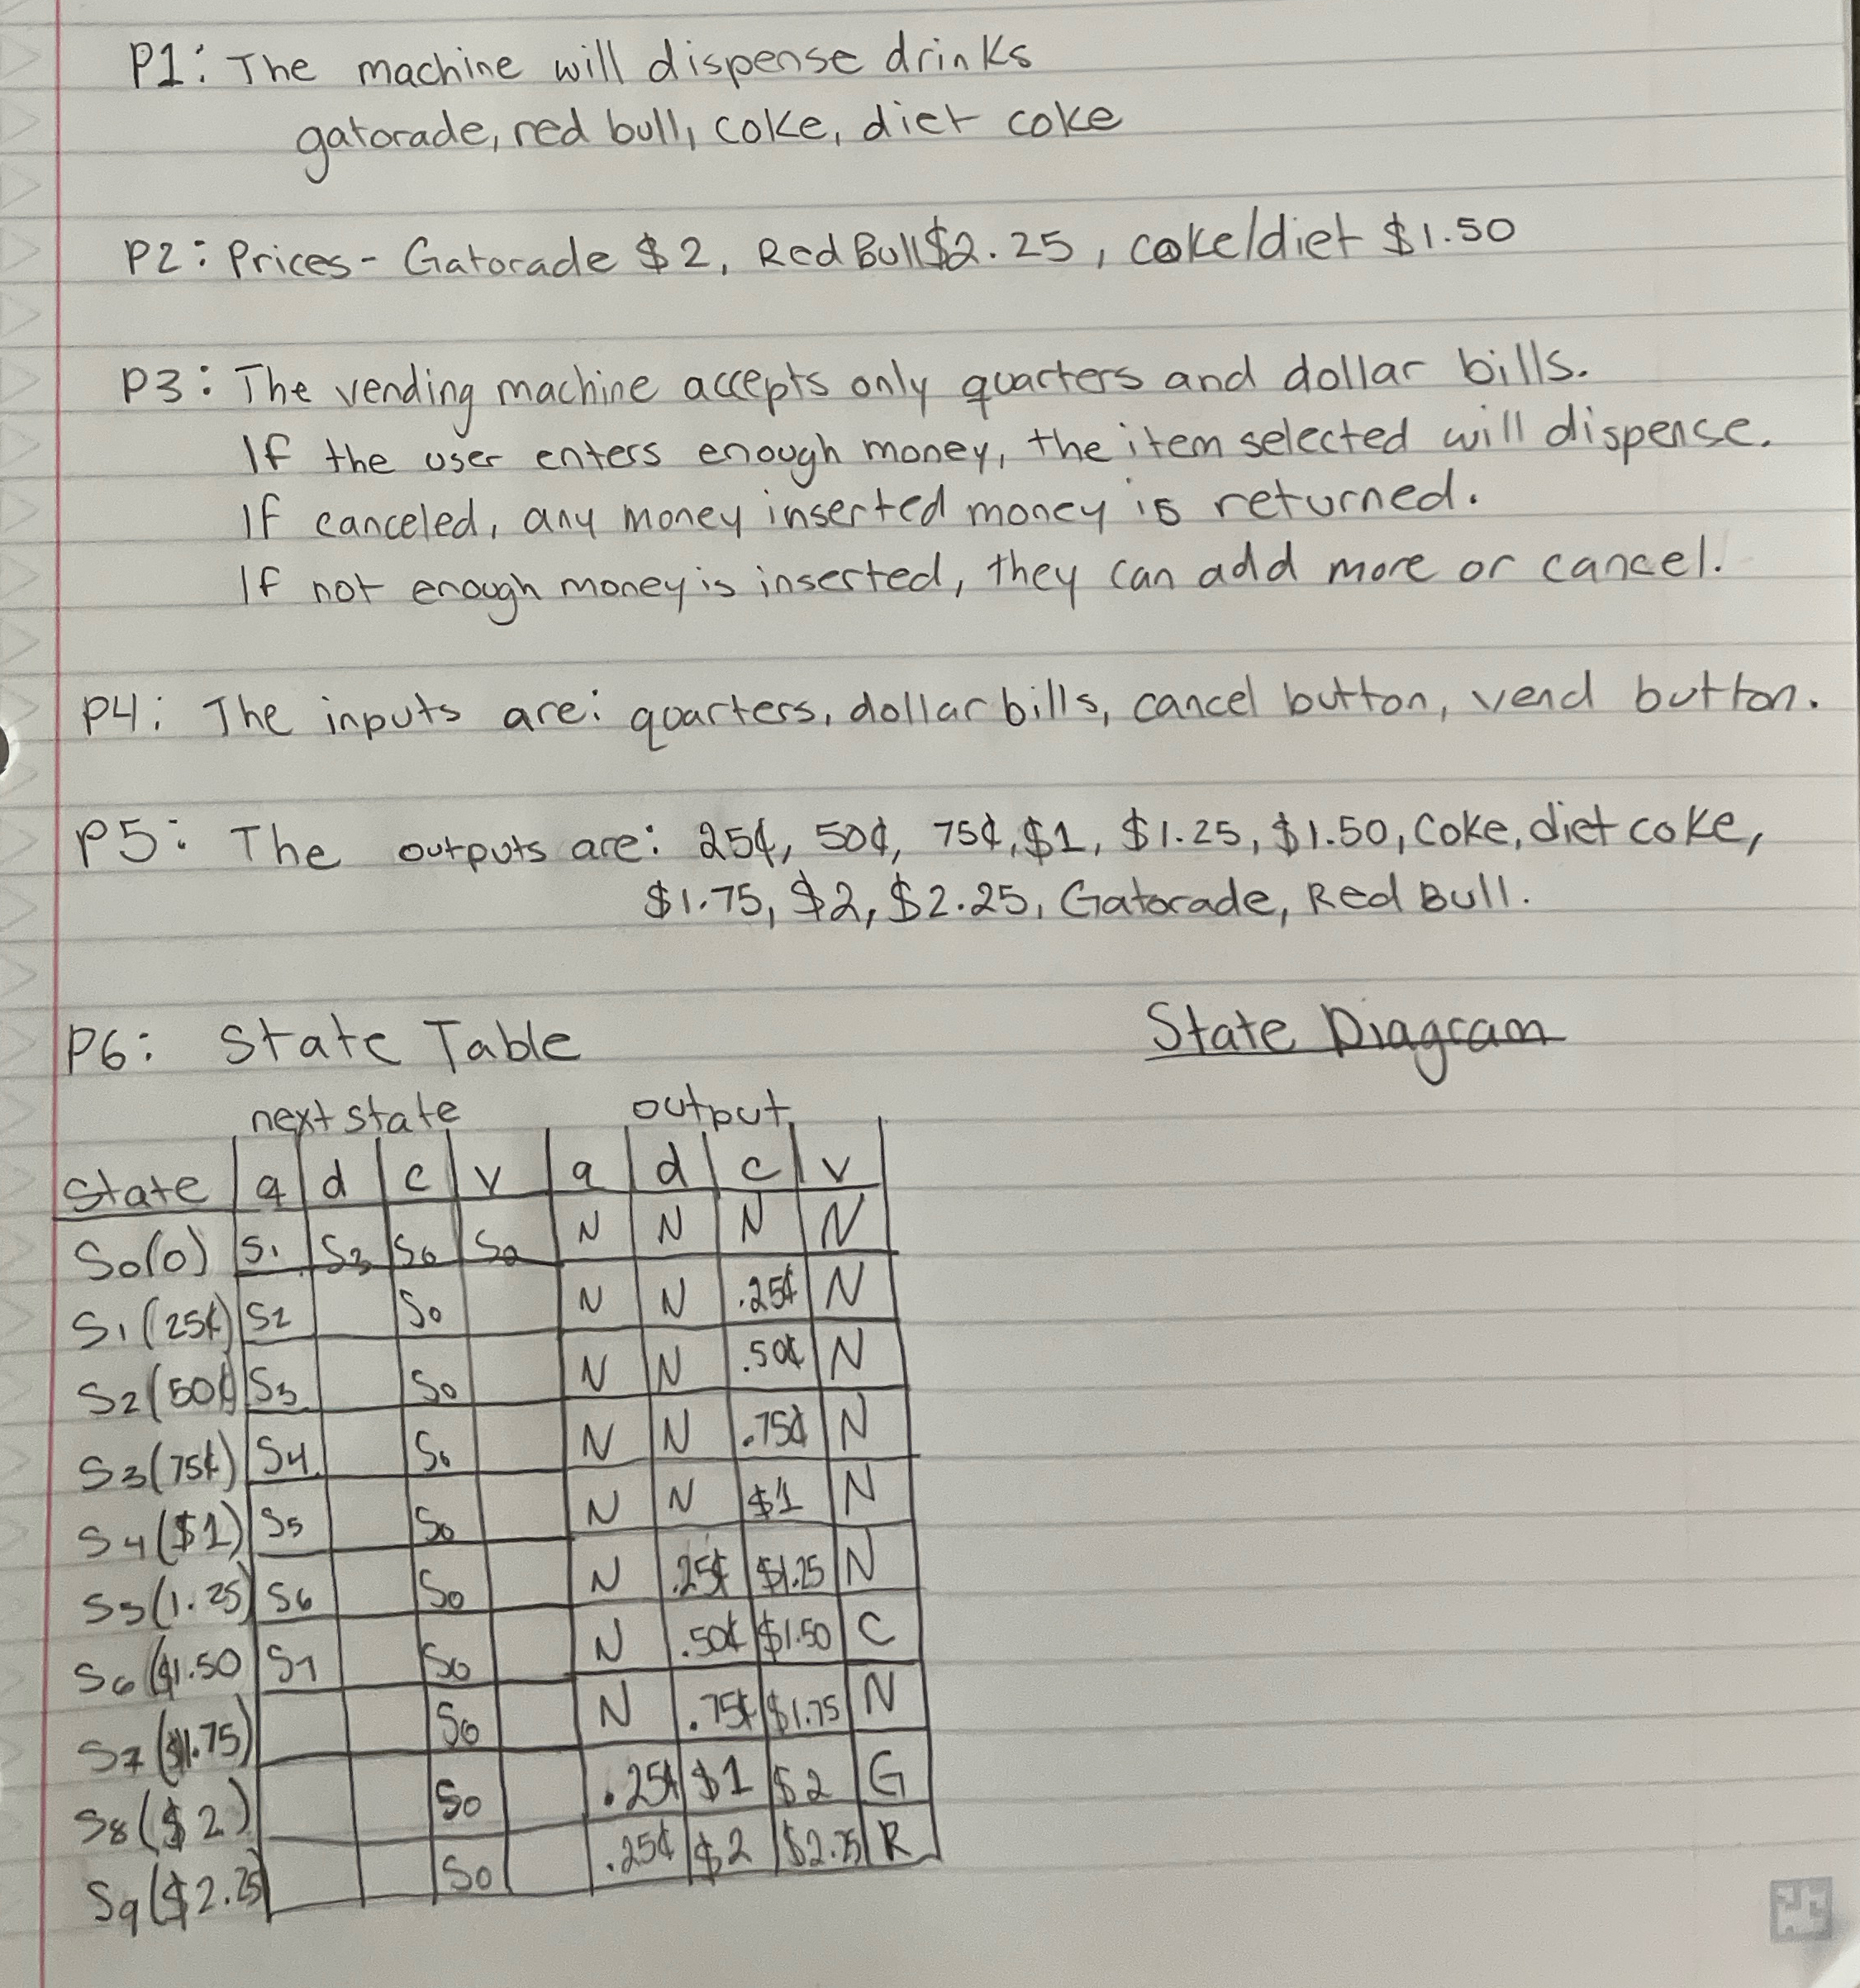 P1: The machine will dispense drinks
gatorade, red bull, coke, diet coke
P2: Prices- Gatorade $2, Red Bull $2.25, coke/diet $1.50
P3: The vending machine accepts only quarters and dollar bills.
If the user enters enough money, the item selected will dispense.
If canceled, any money inserted money is returned.
If not enough money is inserted, they can add more or cancel.
P4: The inputs are: quarters, dollar bills, cancel button, vend button.
P5: The outputs are: 25¢, 50¢, 75¢, $1, $1.25, $1.50, Coke, diet coke,
$1.75, $2, $2.25, Gatorade, Red Bull.
P6: State Table
State Diagram
next state output
State q d c v q d c v
S0(0) S1 S3 S0 S0 N N N N
S1(25¢) S2 S0 N N .25¢ N
S2(50¢ S3 S0 N N .50¢ N
S3(75¢) S4 S0 N N .75¢ N
S4($1) S5 S0 N N $1 N
S5(1.25) S6 S0 N .25¢ $1.25 N
S6($1.50 S7 S0 N .50¢ $1.50 C
S7($1.75) S0 N .75¢ $1.75 N
S8($2) S0 .25¢ $1 $2 G
S9($2.25 S0 .25¢ $2 $2.25 R